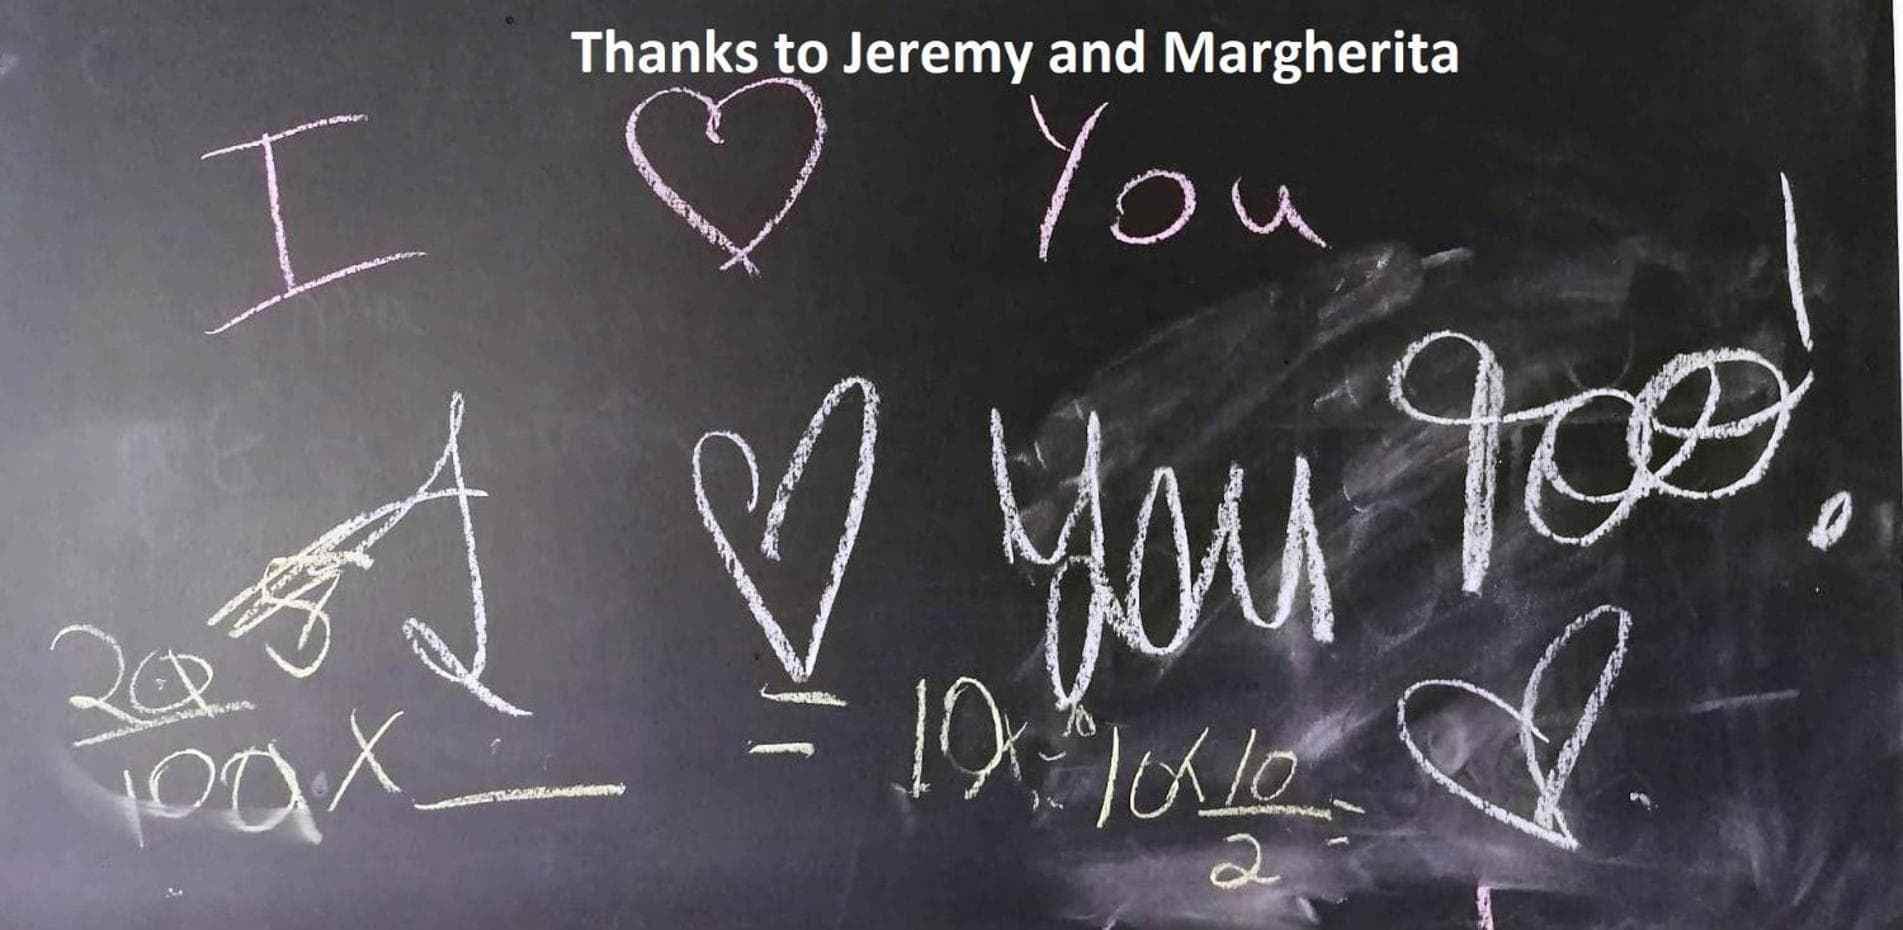 Thanks to Jeremy and Margherita
I ♡ You
I ♡ you too!
8
20
100 x ___ = 10x
10x 10
2